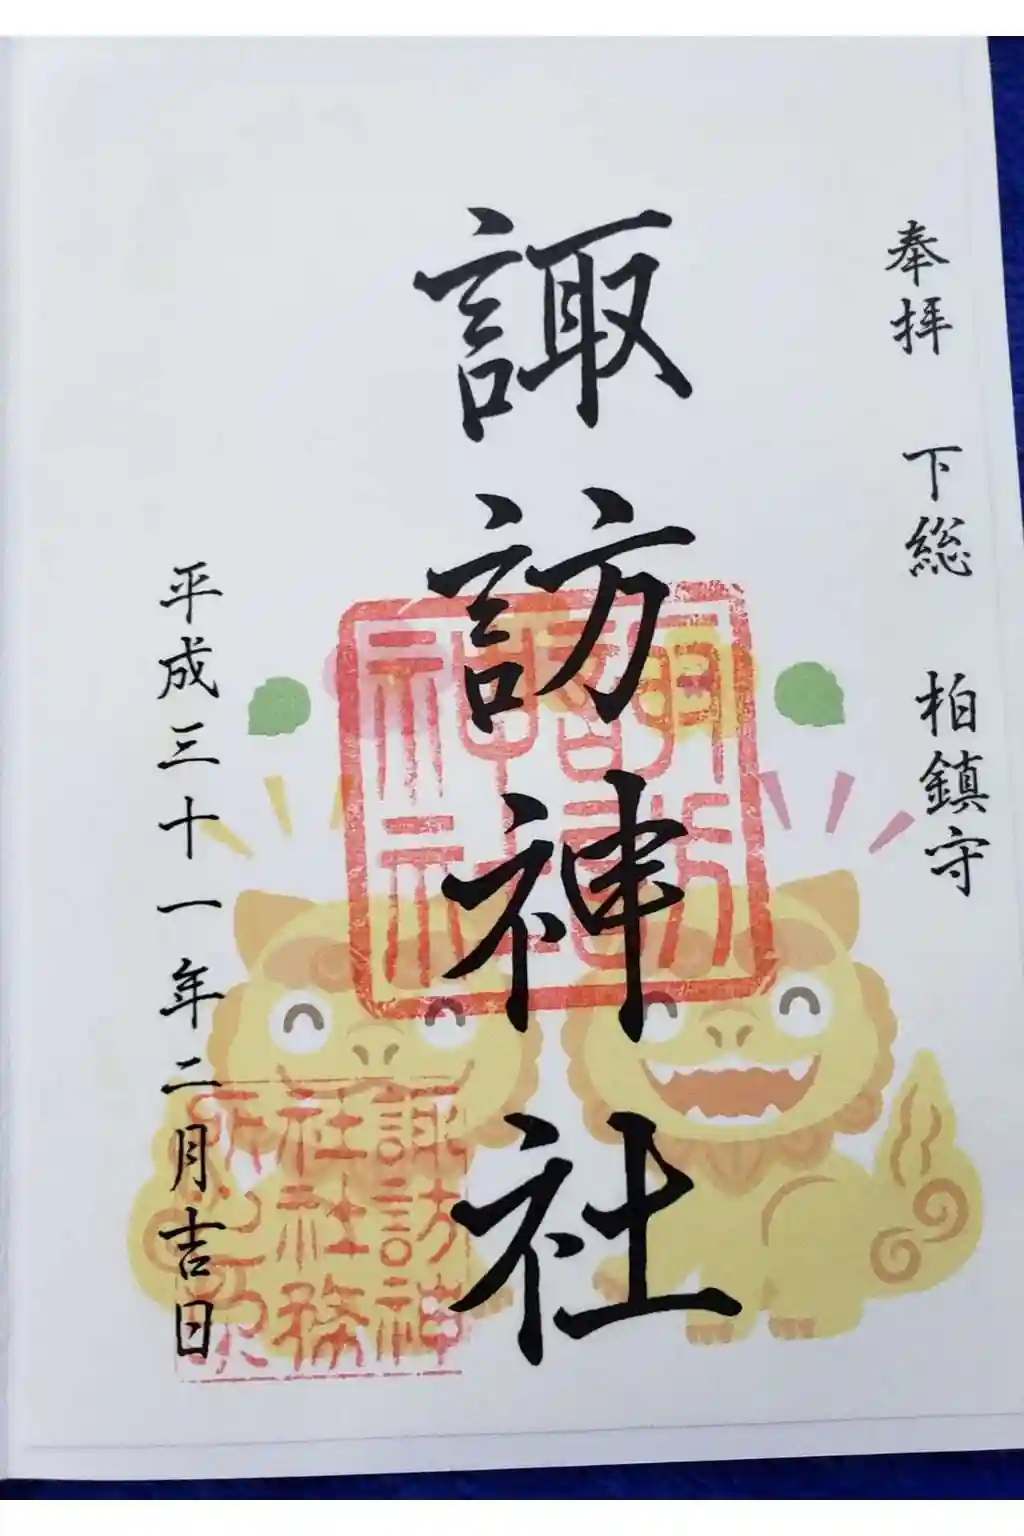 奉拝 下総 柏鎮守
諏訪神社
平成三十一年二月吉日
諏訪
神社
諏訪神
社社務
所之印